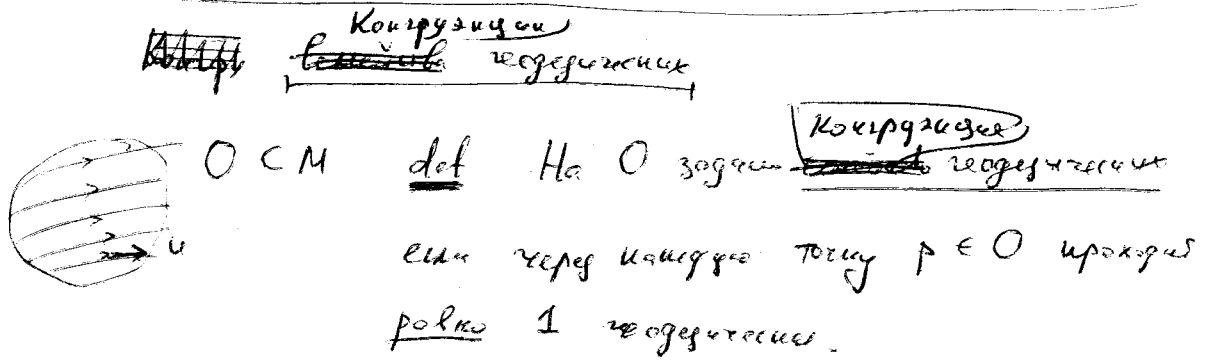 Конгруэнции геодезических
O ⊂ M def На O задана Конгруэнция геодезических
u если через каждую точку p ∈ O проходит
ровно 1 геодезическая.